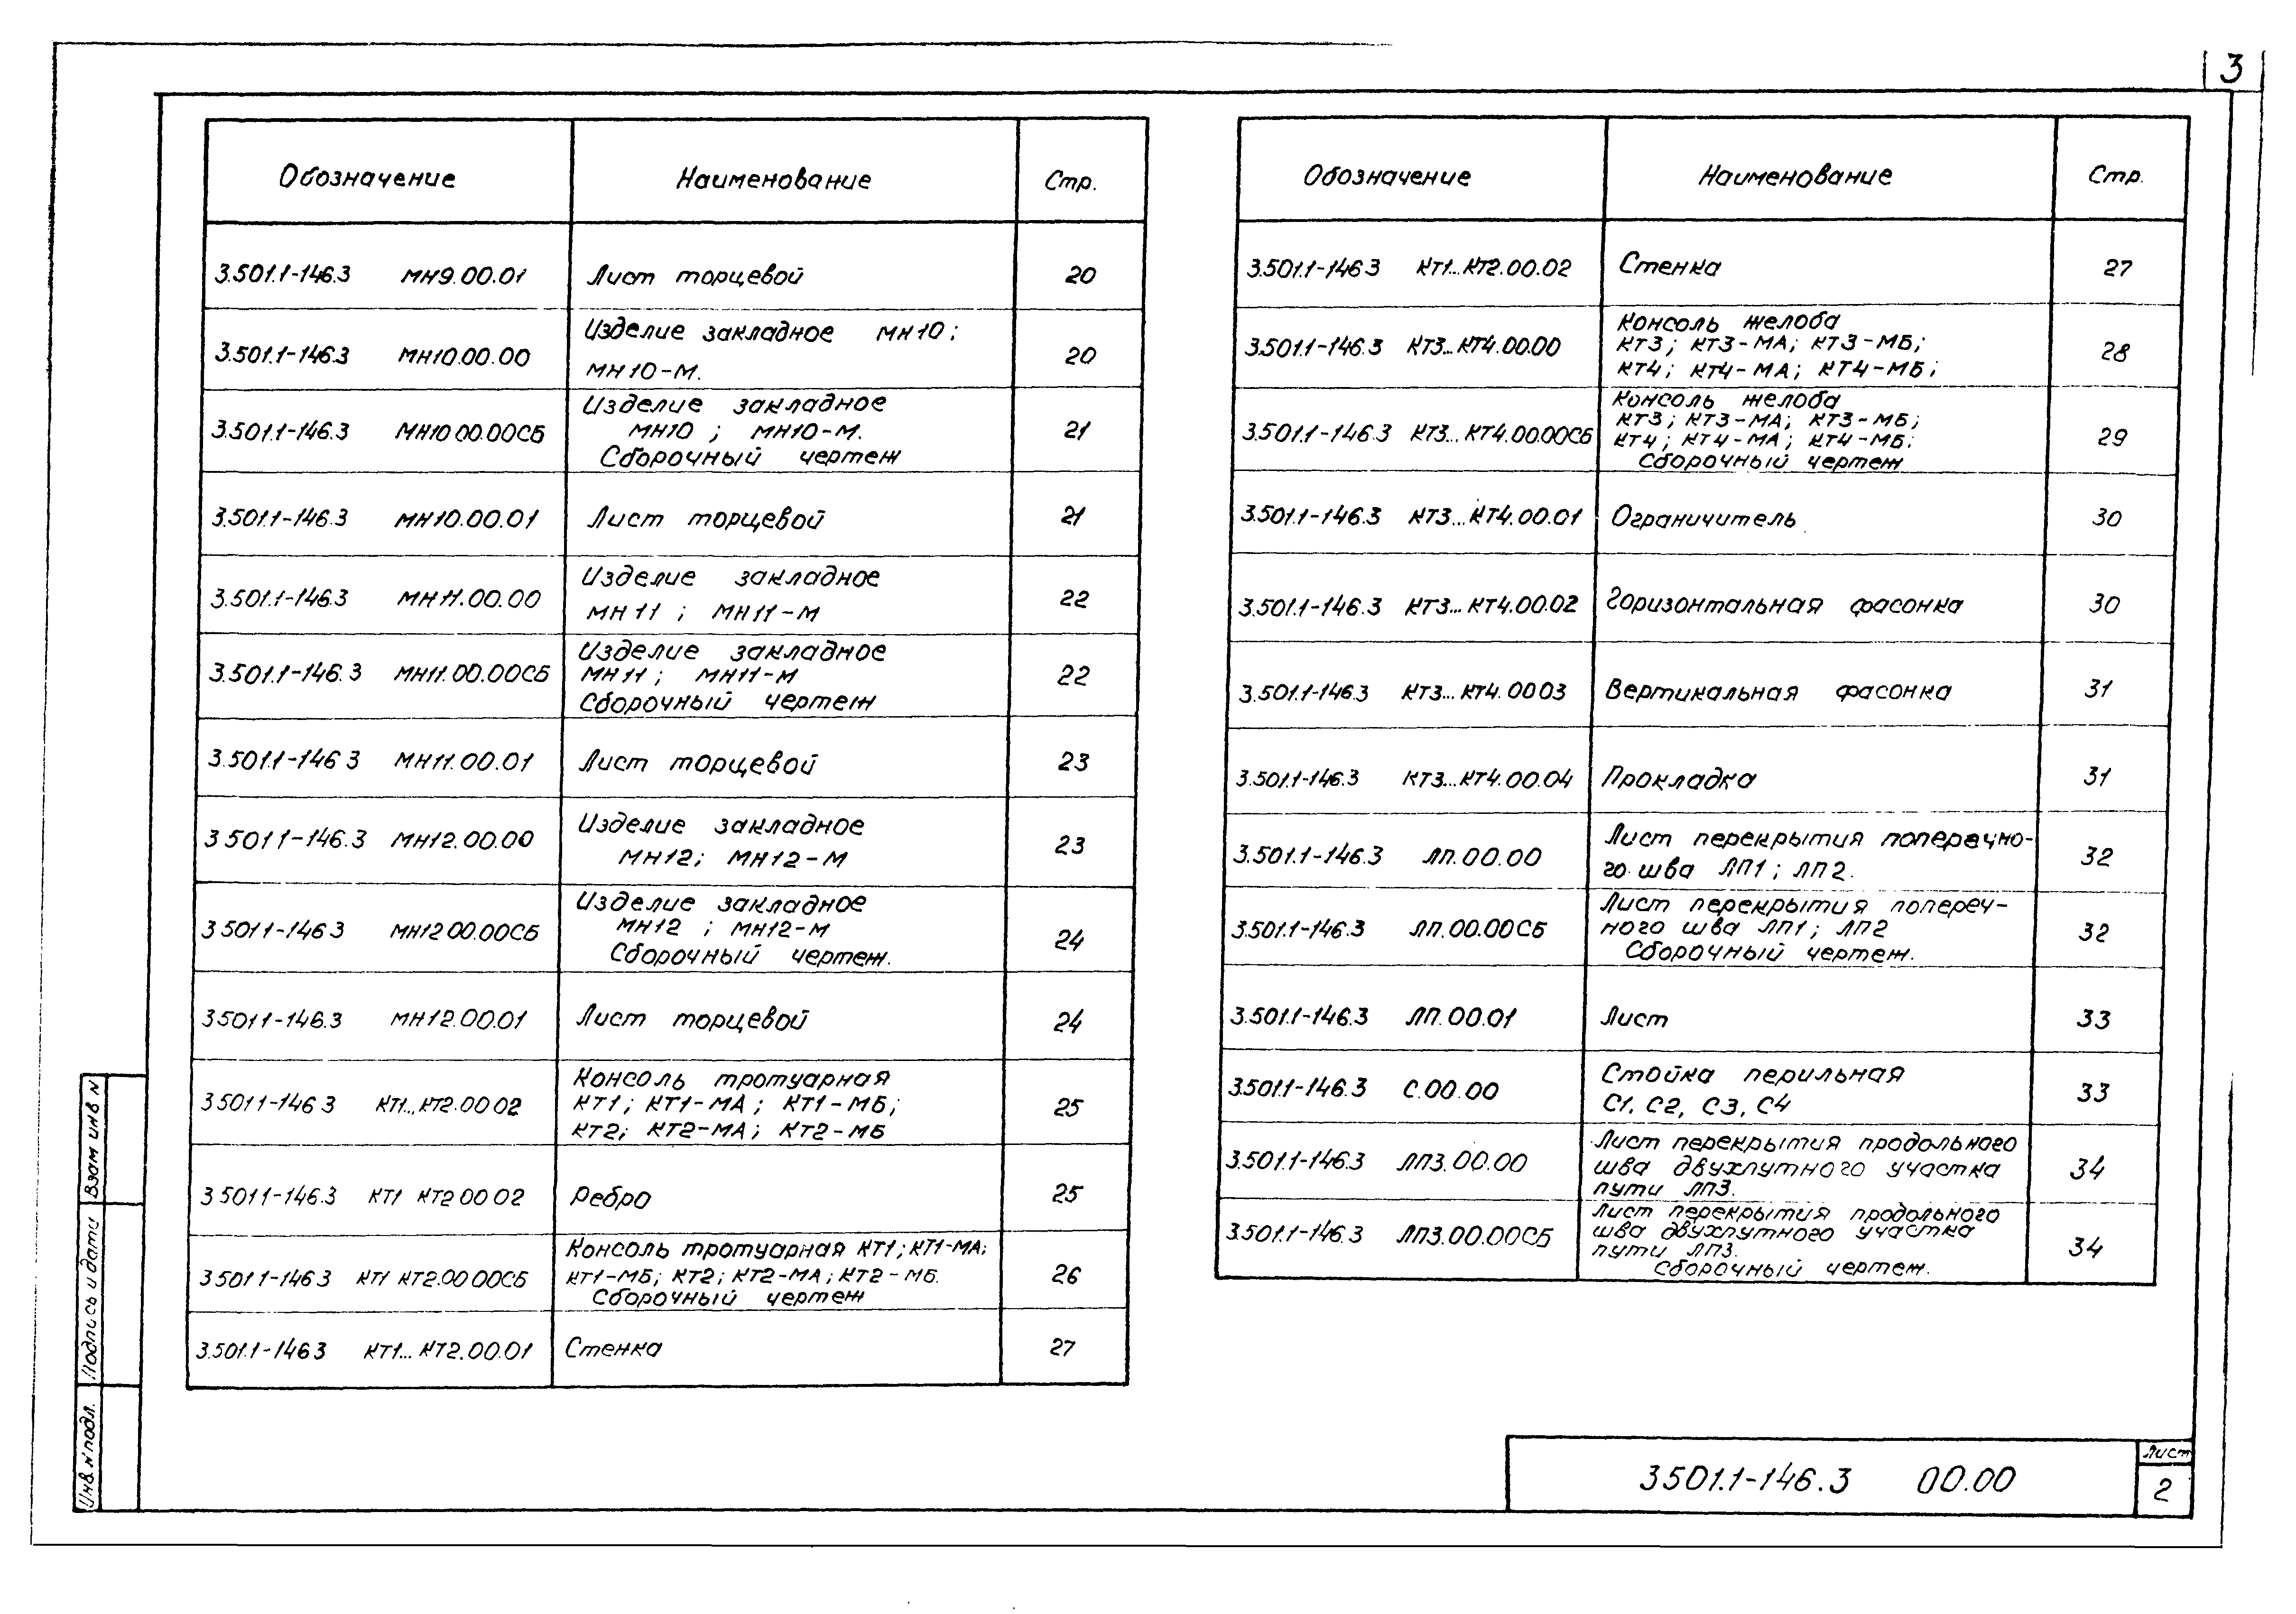 3
Обозначение Наименование Стр.
3.501.1-146.3 МН9.00.01 Лист торцевой 20
3.501.1-146.3 МН10.00.00 Изделие закладное МН10;
МН10-М. 20
3.501.1-146.3 МН10 00.00СБ Изделие закладное
МН10 ; МН10-М.
Сборочный чертеж 21
3.501.1-146.3 МН10.00.01 Лист торцевой 21
3.501.1-146.3 МН11.00.00 Изделие закладное
МН11 ; МН11-М 22
3.501.1-146.3 МН11.00.00СБ Изделие закладное
МН11; МН11-М
Сборочный чертеж 22
3.501.1-146 3 МН11.00.01 Лист торцевой 23
3 501 1-146.3 МН12.00.00 Изделие закладное
МН12; МН12-М 23
3 501 1-146 3 МН12 00.00СБ Изделие закладное
МН12 ; МН12-М
Сборочный чертеж. 24
3 501 1-146.3 МН12.00.01 Лист торцевой 24
3 501 1-146 3 КТ1...КТ2.00 02 Консоль тротуарная
КТ1; КТ1-МА; КТ1-МБ;
КТ2; КТ2-МА; КТ2-МБ 25
3 501 1-146.3 КТ1 КТ2 00 02 Ребро 25
3 501 1-146 3 КТ1 КТ2.00 00СБ Консоль тротуарная КТ1; КТ1-МА;
КТ1-МБ; КТ2; КТ2-МА; КТ2-МБ.
Сборочный чертеж 26
3.501.1-146 3 КТ1...КТ2.00.01 Стенка 27
Обозначение Наименование Стр.
3.501.1-146 3 КТ1...КТ2.00.02 Стенка 27
3.501.1-146.3 КТ3...КТ4.00.00 Консоль желоба
КТ3; КТ3-МА; КТ3-МБ;
КТ4; КТ4-МА; КТ4-МБ; 28
3.501.1-146.3 КТ3...КТ4.00.00СБ Консоль желоба
КТ3; КТ3-МА; КТ3-МБ;
КТ4; КТ4-МА; КТ4-МБ;
Сборочный чертеж 29
3.501.1-146.3 КТ3...КТ4.00.01 Ограничитель 30
3.501.1-146.3 КТ3...КТ4.00.02 Горизонтальная фасонка 30
3.501.1-146.3 КТ3...КТ4.00 03 Вертикальная фасонка 31
3.501.1-146.3 КТ3...КТ4.00.04 Прокладка 31
3.501.1-146.3 ЛП.00.00 Лист перекрытия поперечно-
го шва ЛП1; ЛП2. 32
3.501.1-146.3 ЛП.00.00СБ Лист перекрытия попереч-
ного шва ЛП1; ЛП2
Сборочный чертеж. 32
3.501.1-146.3 ЛП.00.01 Лист 33
3.501.1-146.3 С.00.00 Стойка перильная
С1, С2, С3, С4 33
3.501.1-146.3 ЛП3.00.00 Лист перекрытия продольного
шва двухпутного участка
пути ЛП3. 34
3.501.1-146.3 ЛП3.00.00СБ Лист перекрытия продольного
шва двухпутного участка
пути ЛП3.
Сборочный чертеж. 34
Взам инв N
Подпись и дата
Инв. N подл.
3.501.1-146.3 00.00
Лист
2